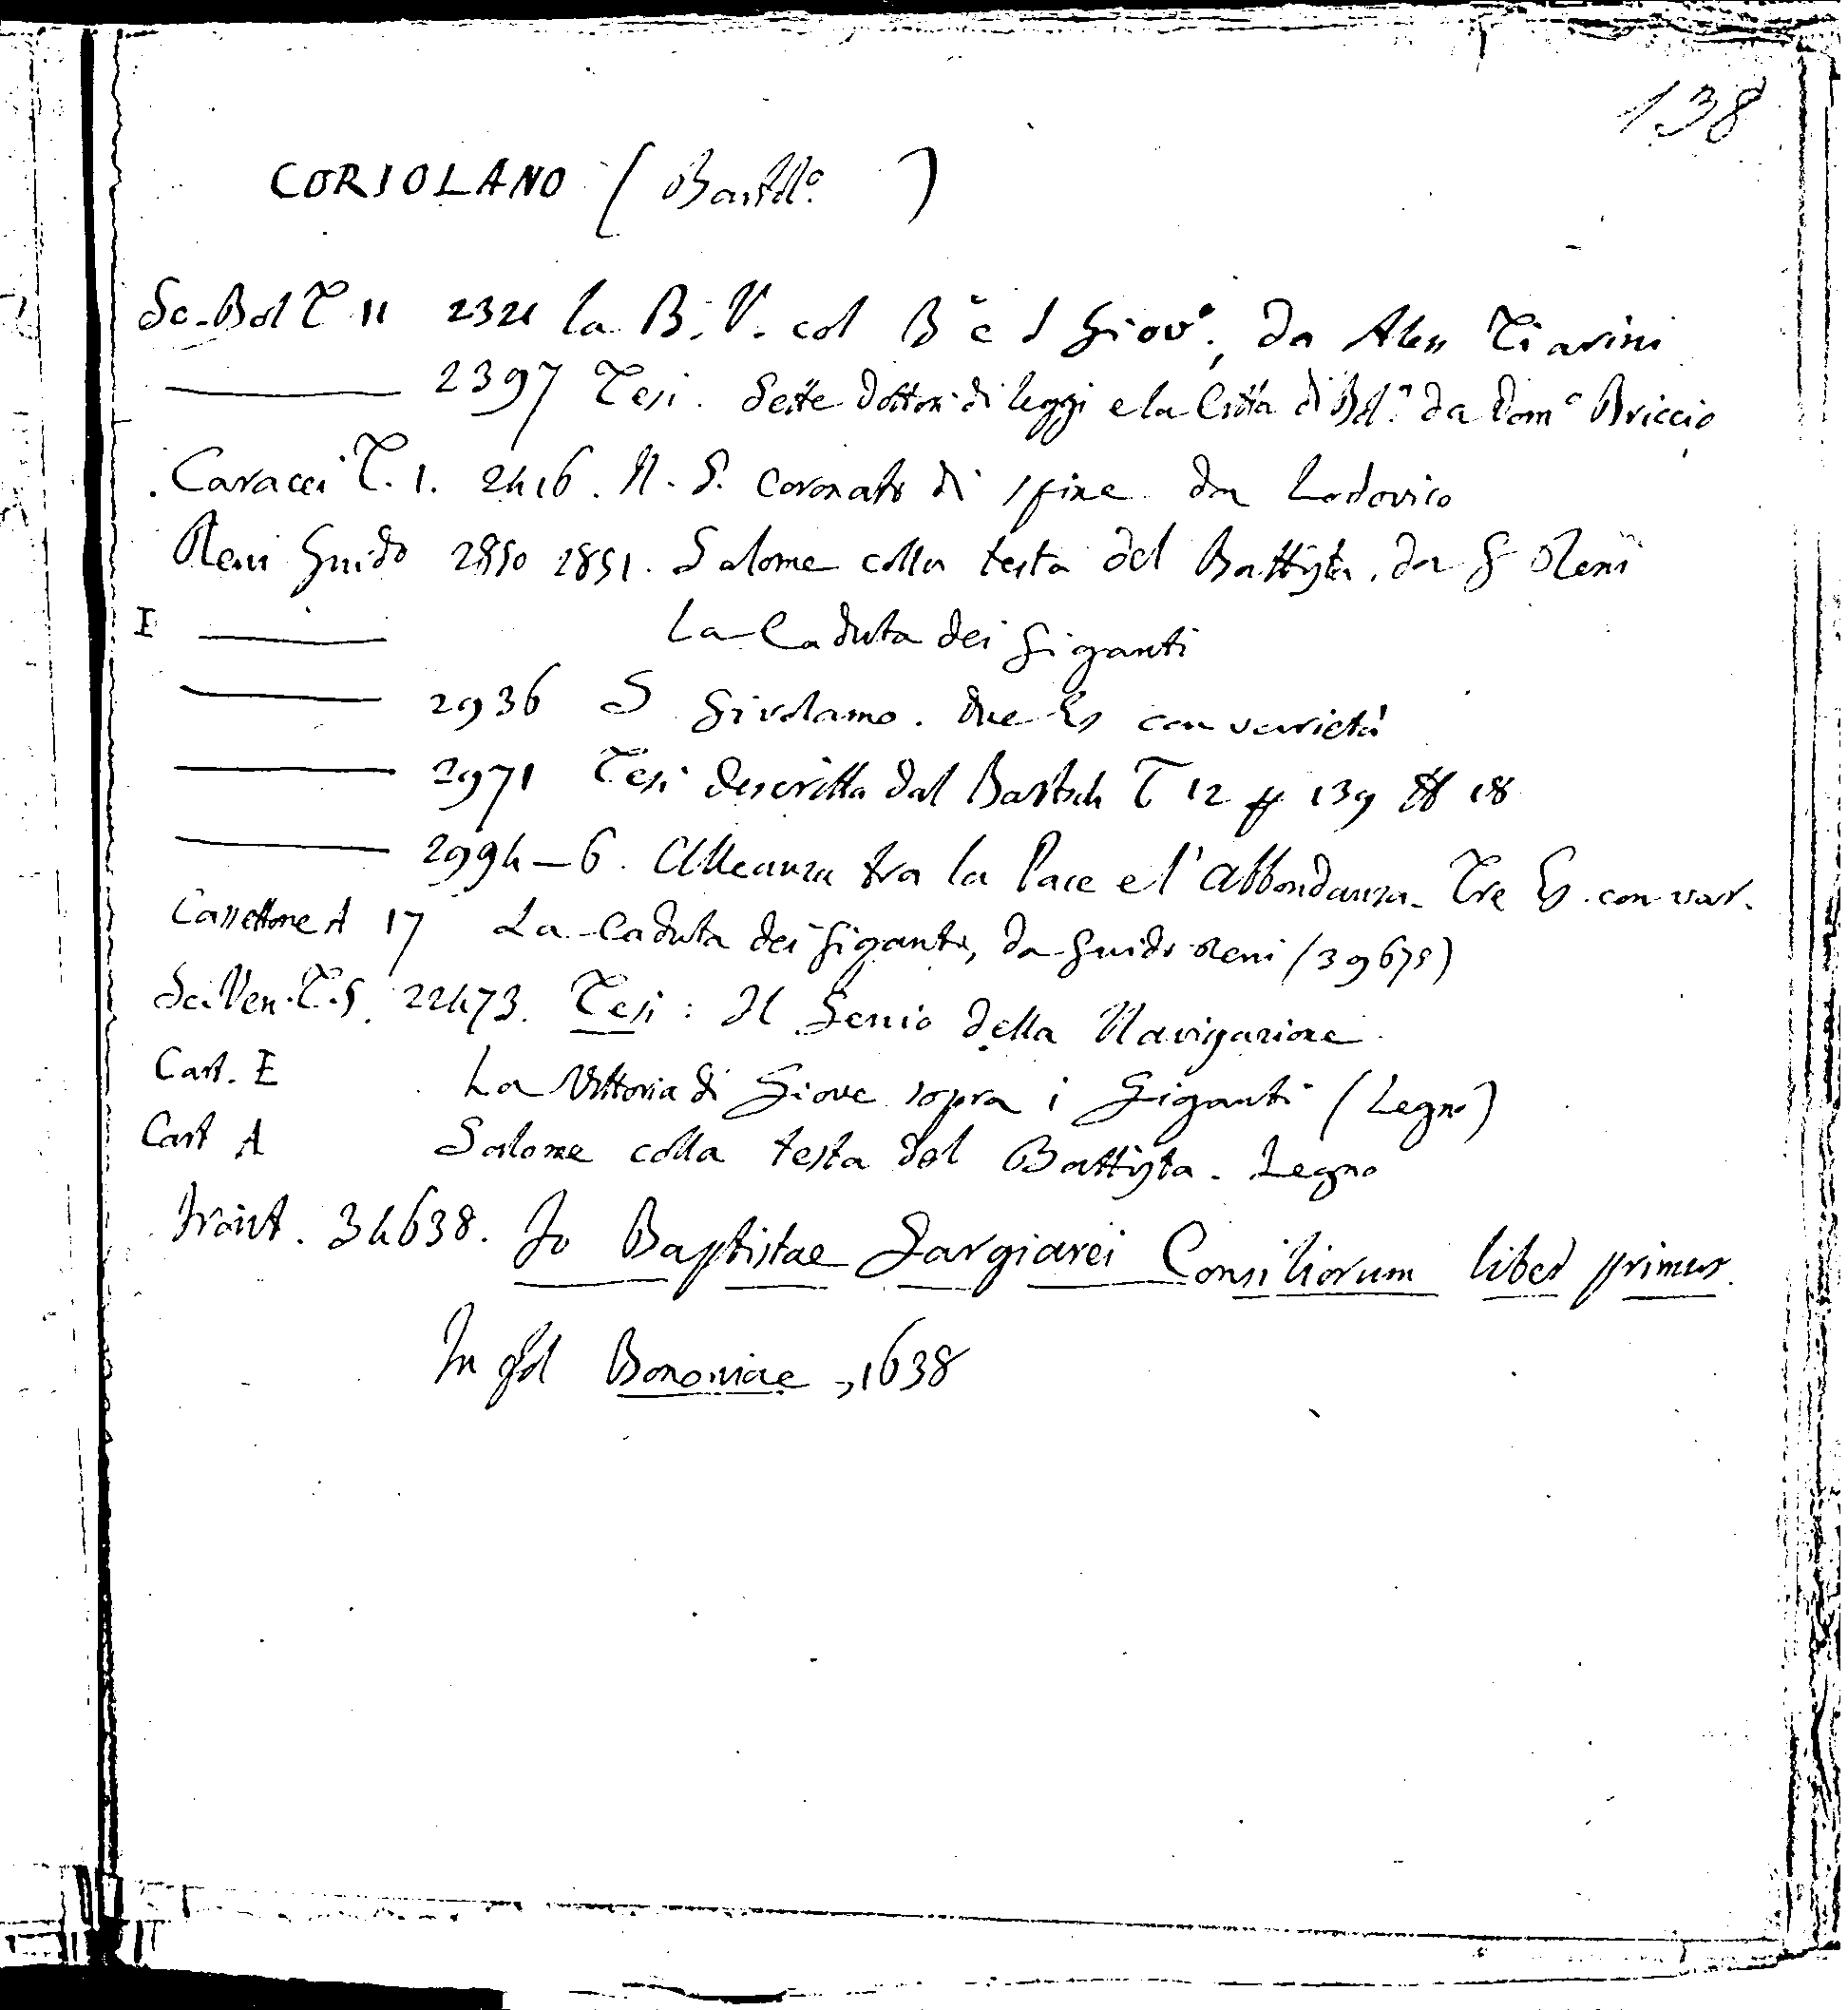 138
CORIOLANO (Bartol.o )
Sc. Bol T. 11 2321 la B. V. col B.o e S Giov.o, da Aless Tiarini
——— 2397 Tesi. Sette dottori di leggi e la Città di Bol.a da Dom.o Briccio
Caracci T. 1. 2416. N. S. coronato di spine da Lodovico
Reni Guido 2850 2851. Salome colla testa del Battista, da G Reni
I ——— La Caduta dei Giganti
——— 2936 S Girolamo. due Es con varietà
——— 2971 Tesi descritta dal Bartsch T 12 p 139 # 18
——— 2994-6. Alleanza tra la Pace e l'Abbondanza. Tre Es. con var.
Cassettone A 17 La Caduta dei Giganti, da Guido Reni (39675)
Sc. Ven. T. 5. 22473. Tesi: Il Genio della Navigazione
Cart. E La Vittoria di Giove sopra i Giganti (Legno)
Cart A Salome colla testa del Battista. Legno
Front. 34638. Jo Baptistae Gargiarei Consiliorum liber primus.
In fol Bononiae, 1638